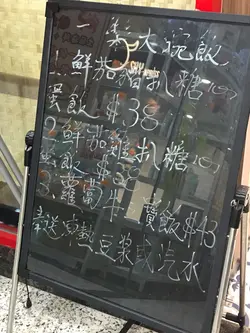 一 業大碗飯
1.鮮茄豬扒糖心
蛋飯 $38
2 鮮茄雞扒糖心
蛋飯 $38
3. 蘿蔔牛 寶飯 $43
送凍熱豆漿或汽水